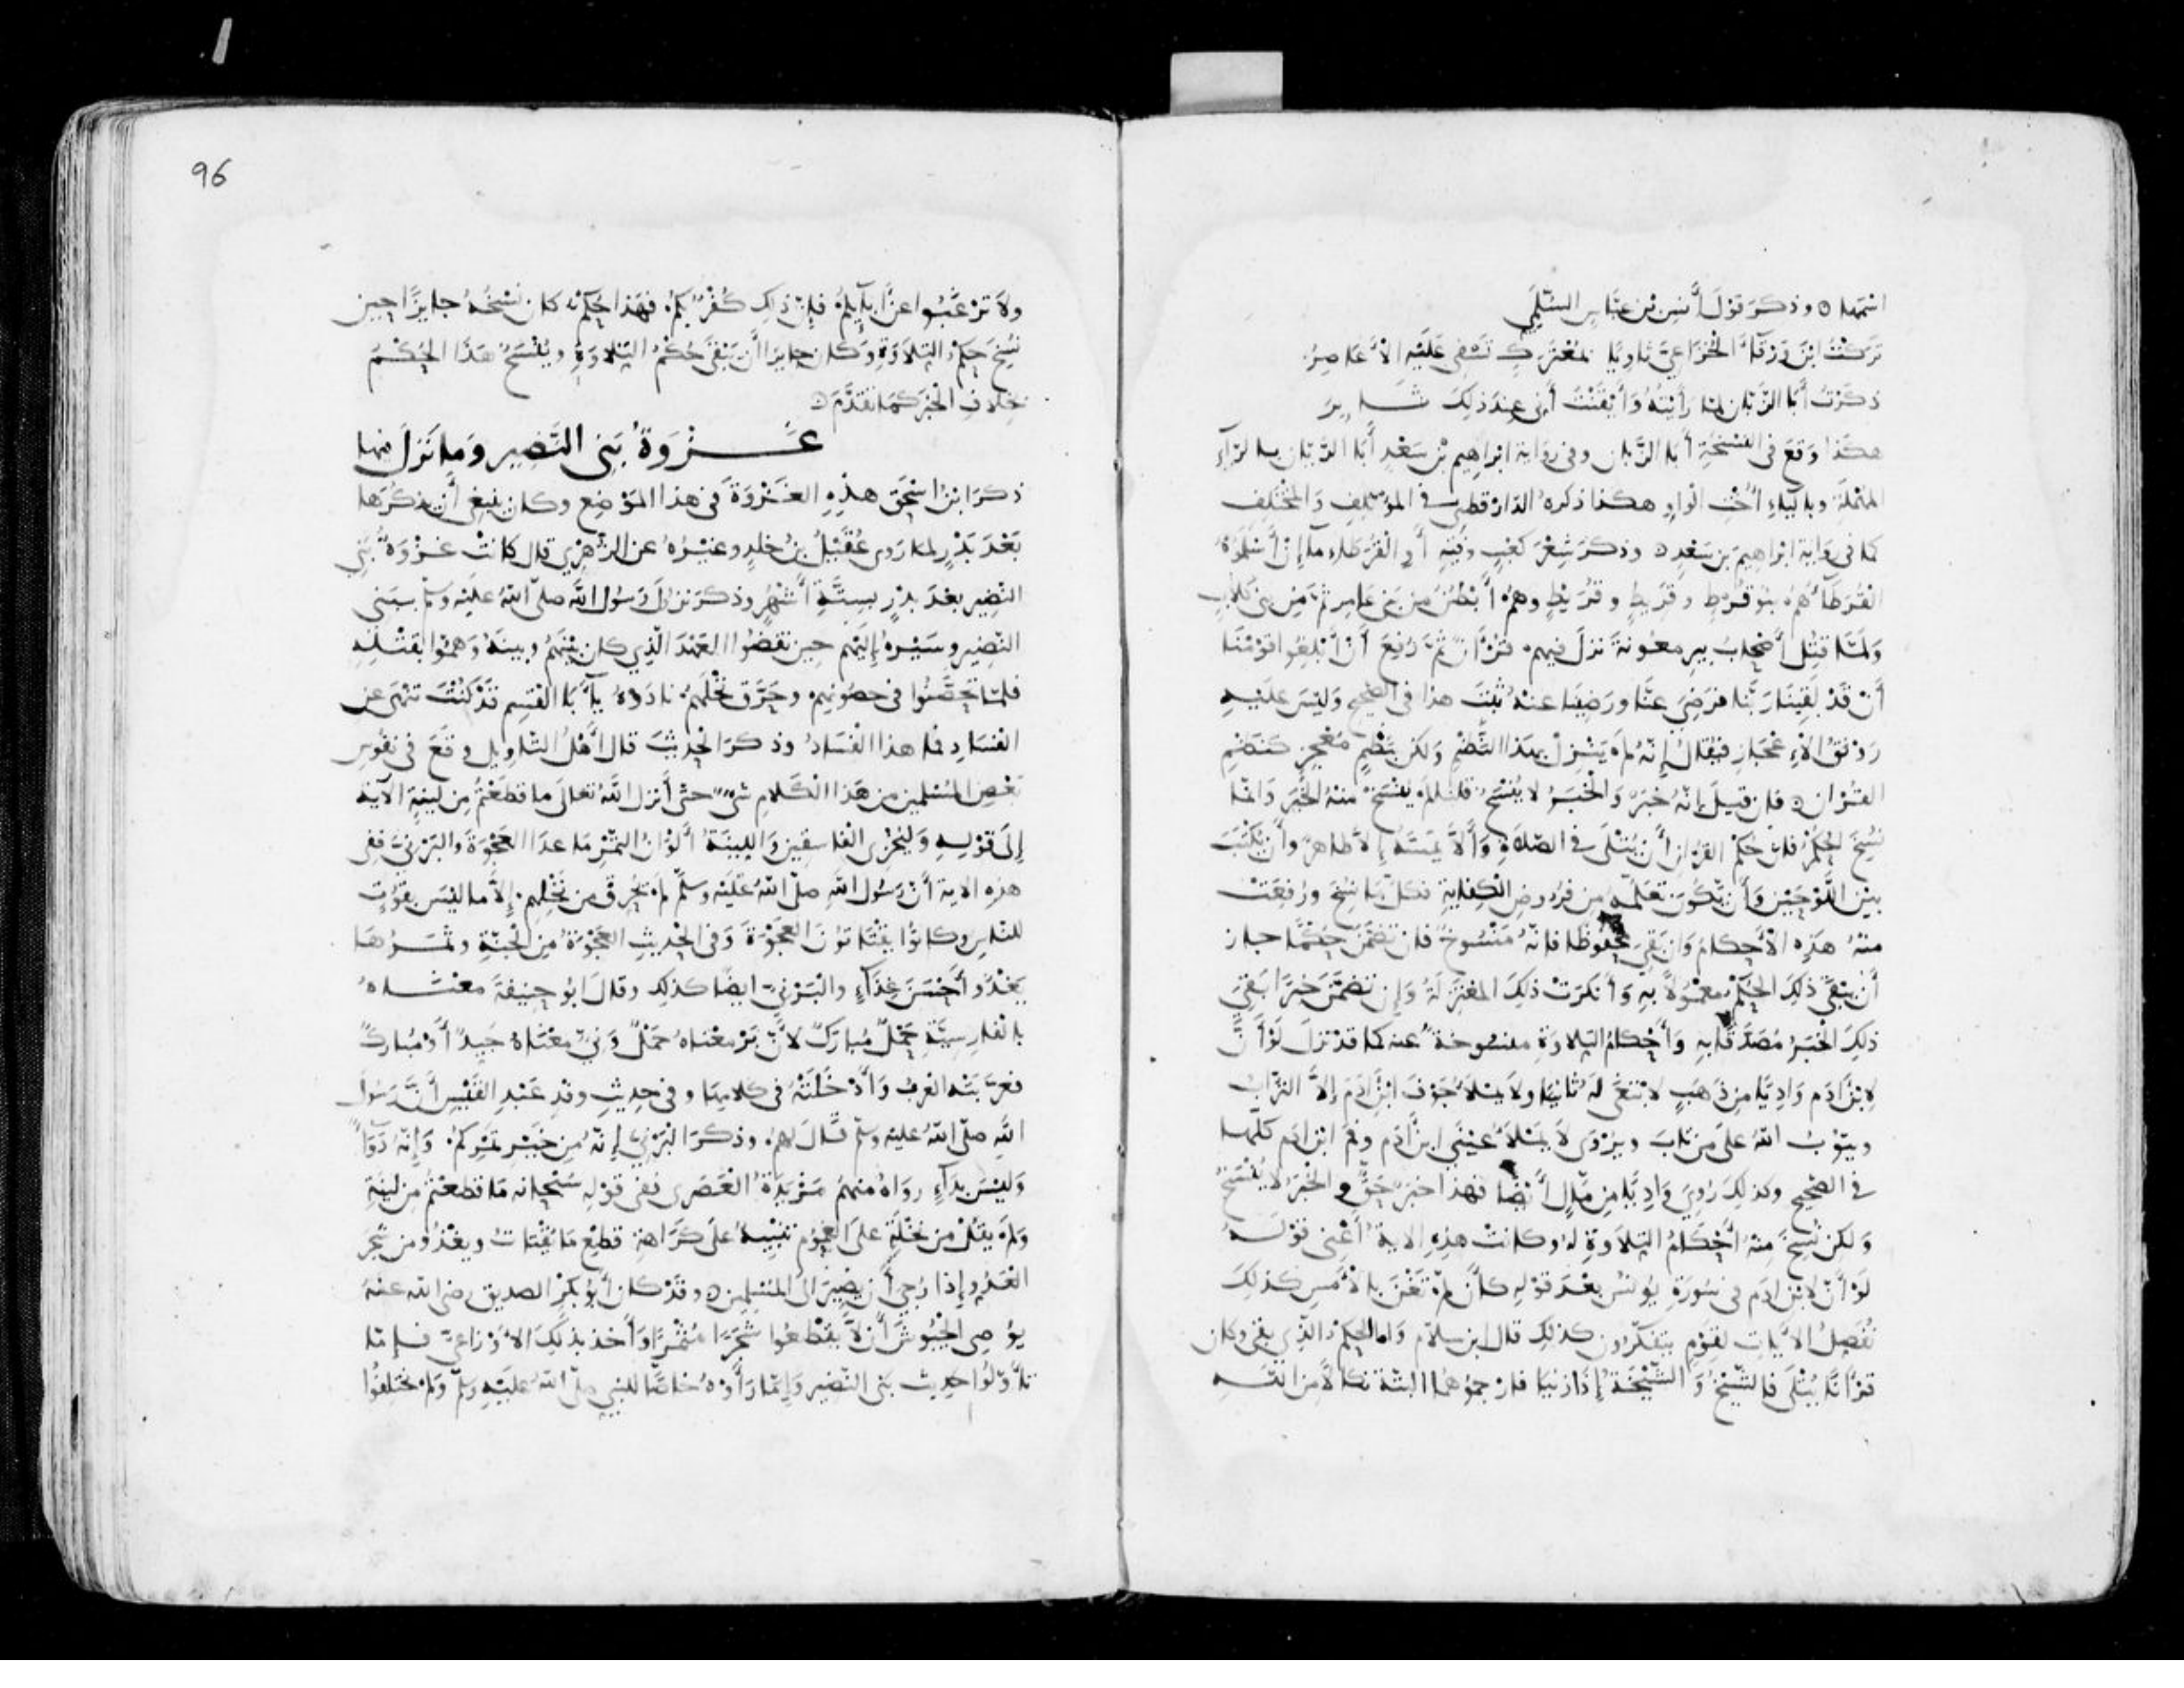 اسمها ٥ وذكر قول أنس بن عباس السلمي
تركت ابن ورقاء الخزاعي ثاويا بمعترك تسفى عليه الأعاصر
ذكرت أبا الزبان لما رأيته وأيقنت أني عند ذلك ثاير
هكذا وقع في النسخة أبا الزبان وفي رواية ابراهيم بن سعد أبا الريان بالراء
المهملة وبالياء أخت الواو هكذا ذكره الدارقطني في المؤتلف والمختلف
كما في رواية ابراهيم بن سعد ٥ وذكر شعر كعب وفيه أو القرطاء ما إن أسلموه
القرطاء هم بنو قرط وقريط وقريط وهم أبطن من بني عامر ثم من بني كلاب
ولما قتل أصحاب بير معونة نزل فيهم قرآن ثم رفع أن أبلغوا قومنا
أن قد لقينا ربنا فرضي عنا ورضينا عنه ثبت هذا في الصحيح وليس عليه
رونق الإعجاز فيقال إنه لم ينزل بهذا النظم ولكن بنظم معجز كنظم
القران ٥ فان قيل إنه خبر والخبر لا ينسخ قلنا لم ينسخ منه الخبر وانما
نسخ الحكم فان حكم القران أن يتلى في الصلاة وألا يمسه إلا طاهر وأن يكتب
بين اللوحين وأن يكون تعلمه من فروض الكفاية فكل ما نسخ ورفعت
منه هذه الأحكام وان بقي محفوظا فانه منسوخ فان تضمن حكما جاز
أن يبقى ذلك الحكم معمولا به وأنكرت ذلك المعتزلة وإن تضمن خبرا بقي
ذلك الخبر مصدقا به وأحكام التلاوة منسوخة عنه كما قد نزل لو أن
لابن آدم واديا من ذهب لابتغى له ثانيا ولا يملأ جوف ابن آدم إلا التراب
ويتوب الله على من تاب ويروى لا يملأ عيني ابن آدم وفم ابن ادم كلها
في الصحيح وكذلك روي واديا من مال أيضا فهذا خبر حق والخبر لا ينسخ
ولكن نسخ منه أحكام التلاوة له وكانت هذه الاية أعني قوله
لو أن لابن ادم في سورة يونس بعد قوله كأن لم تغن بالأمس كذلك
نفصل الآيات لقوم يتفكرون كذلك قال ابن سلام واما الحكم الذي بقي وكان
قرآنا يتلى فالشيخ والشيخة إذا زنيا فارجموهما البتة نكالا من الله
96
ولا ترغبوا عن آبايكم فإن ذلك كفر بكم فهذا حكم كان نسخه جايزا حين
نسخ حكم التلاوة وكان جايزا أن يبقى حكم التلاوة وينسخ هذا الحكم
بخلاف الخبر كما تقدم ٥
غزوة بني النضير وما نزل فيها
ذكر ابن اسحق هذه الغزوة في هذا الموضع وكان ينبغي أن يذكرها
بعد بدر لما روى عقيل بن خلد وغيره عن الزهري قال كانت غزوة بني
النضير بعد بدر بستة أشهر وذكر نزول رسول الله صلى الله عليه وسلم ببني
النضير وسيره إليهم حين نقضوا العهد الذي كان بينهم وبينه وهموا بقتله
فلما تحصنوا في حصونهم وحرق نخلهم نادوه يأبا القسم قد كنت تنهى عن
الفساد فما هذا الفساد وذكر الحديث قال أهل التاويل وقع في نفوس
بعض المسلمين من هذا الكلام شيء حتى أنزل الله تعالى ما قطعتم من لينة الآية
إلى قوله وليخزي الفاسقين واللينة ألوان التمر ما عدا العجوة والبرني ففي
هذه الاية أن رسول الله صلى الله عليه وسلم لم يحرق من نخلهم إلا ما ليس بقوت
للناس وكانوا يقتاتون العجوة وفي الحديث العجوة من الجنة وثمرها
يغذو أحسن غذاء والبرني ايضا كذلك وقال ابو حنيفة معناه
بالفارسية حمل مبارك لأن بر معناه حمل وني معناه جيد أو مبارك
فعربته العرب وأدخلته في كلامها وفي حديث وفد عبد القيس أن رسول
الله صلى الله عليه وسلم قال لهم وذكر البرني إنه من خير تمركم وإنه دواء
وليس بداء رواه منهم مزيدة العصري ففي قوله سبحانه ما قطعتم من لينة
ولم يقل من نخلة على العموم تنبيه على كراهة قطع ما يقتات ويغذو من شجر
العدو إذا رجي أن يصير الى المسلمين ٥ وقد كان أبو بكر الصديق رضي الله عنه
يوصي الجيوش أن لا يقطعوا شجرا مثمرا وأخذ بذلك الأوزاعي فإما
تأولوا حديث بني النضير وإما رأوه خاصا للنبي صلى الله عليه وسلم ولم يختلفوا